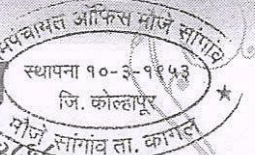 मपंचायत ऑफिस मौजे सांगांव
स्थापना १०-३-१९५३
जि. कोल्हापूर
मौजे सांगांव ता. कागल